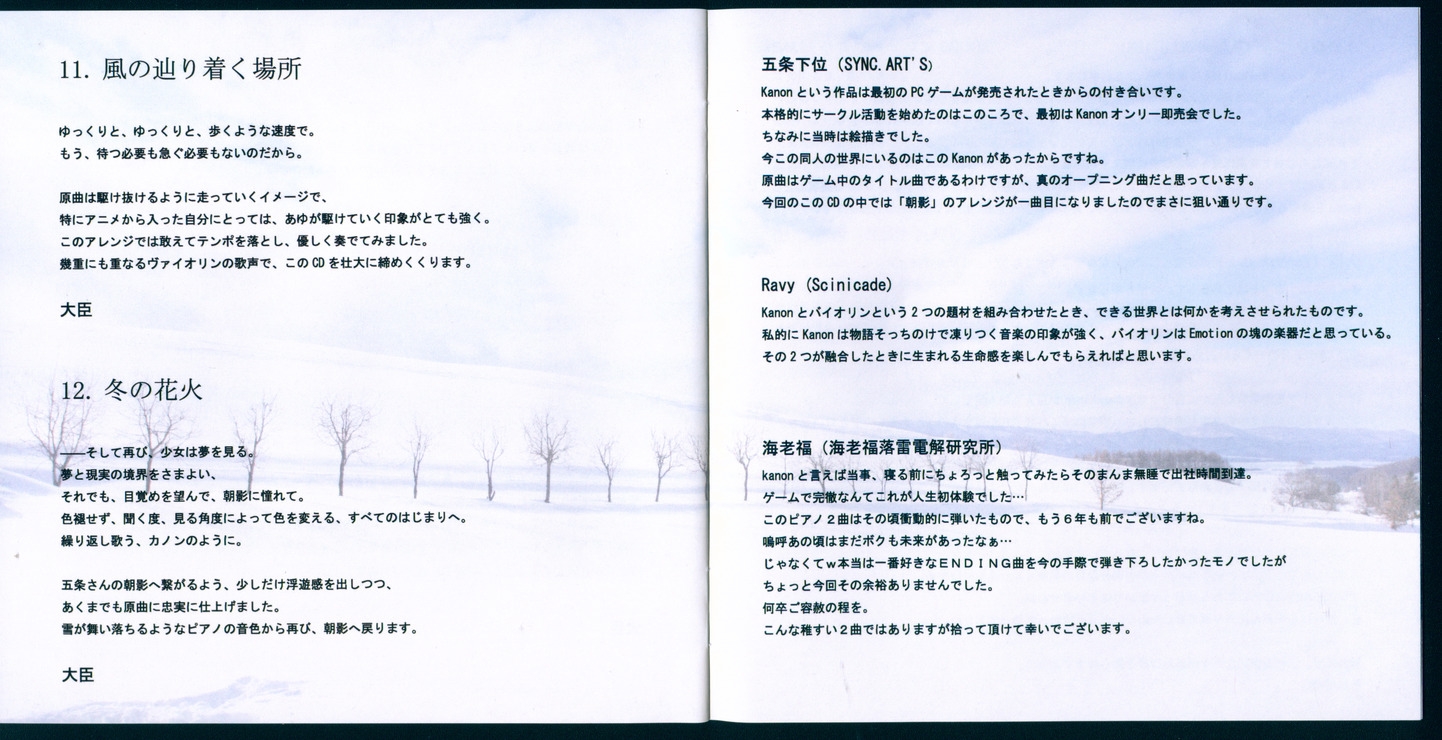 11. 風の辿り着く場所
ゆっくりと、ゆっくりと、歩くような速度で。
もう、待つ必要も急ぐ必要もないのだから。
原曲は駆け抜けるように走っていくイメージで、
特にアニメから入った自分にとっては、あゆが駆けていく印象がとても強く。
このアレンジでは敢えてテンポを落とし、優しく奏でてみました。
幾重にも重なるヴァイオリンの歌声で、このCDを壮大に締めくくります。
大臣
12. 冬の花火
――そして再び、少女は夢を見る。
夢と現実の境界をさまよい、
それでも、目覚めを望んで、朝影に憧れて。
色褪せず、聞く度、見る角度によって色を変える、すべてのはじまりへ。
繰り返し歌う、カノンのように。
五条さんの朝影へ繋がるよう、少しだけ浮遊感を出しつつ、
あくまでも原曲に忠実に仕上げました。
雪が舞い落ちるようなピアノの音色から再び、朝影へ戻ります。
大臣
五条下位 (SYNC.ART'S)
Kanonという作品は最初のPCゲームが発売されたときからの付き合いです。
本格的にサークル活動を始めたのはこのころで、最初はKanonオンリー即売会でした。
ちなみに当時は絵描きでした。
今この同人の世界にいるのはこのKanonがあったからですね。
原曲はゲーム中のタイトル曲であるわけですが、真のオープニング曲だと思っています。
今回のこのCDの中では「朝影」のアレンジが一曲目になりましたのでまさに狙い通りです。
Ravy (Scinicade)
Kanonとバイオリンという2つの題材を組み合わせたとき、できる世界とは何かを考えさせられたものです。
私的にKanonは物語そっちのけで凍りつく音楽の印象が強く、バイオリンはEmotionの塊の楽器だと思っている。
その2つが融合したときに生まれる生命感を楽しんでもらえればと思います。
海老福（海老福落雷電解研究所）
kanonと言えば当事、寝る前にちょろっと触ってみたらそのまんま無睡で出社時間到達。
ゲームで完徹なんてこれが人生初体験でした…
このピアノ２曲はその頃衝動的に弾いたもので、もう６年も前でございますね。
嗚呼あの頃はまだボクも未来があったなぁ…
じゃなくてｗ本当は一番好きなＥＮＤＩＮＧ曲を今の手際で弾き下ろしたかったモノでしたが
ちょっと今回その余裕ありませんでした。
何卒ご容赦の程を。
こんな稚すい２曲ではありますが拾って頂けて幸いでございます。